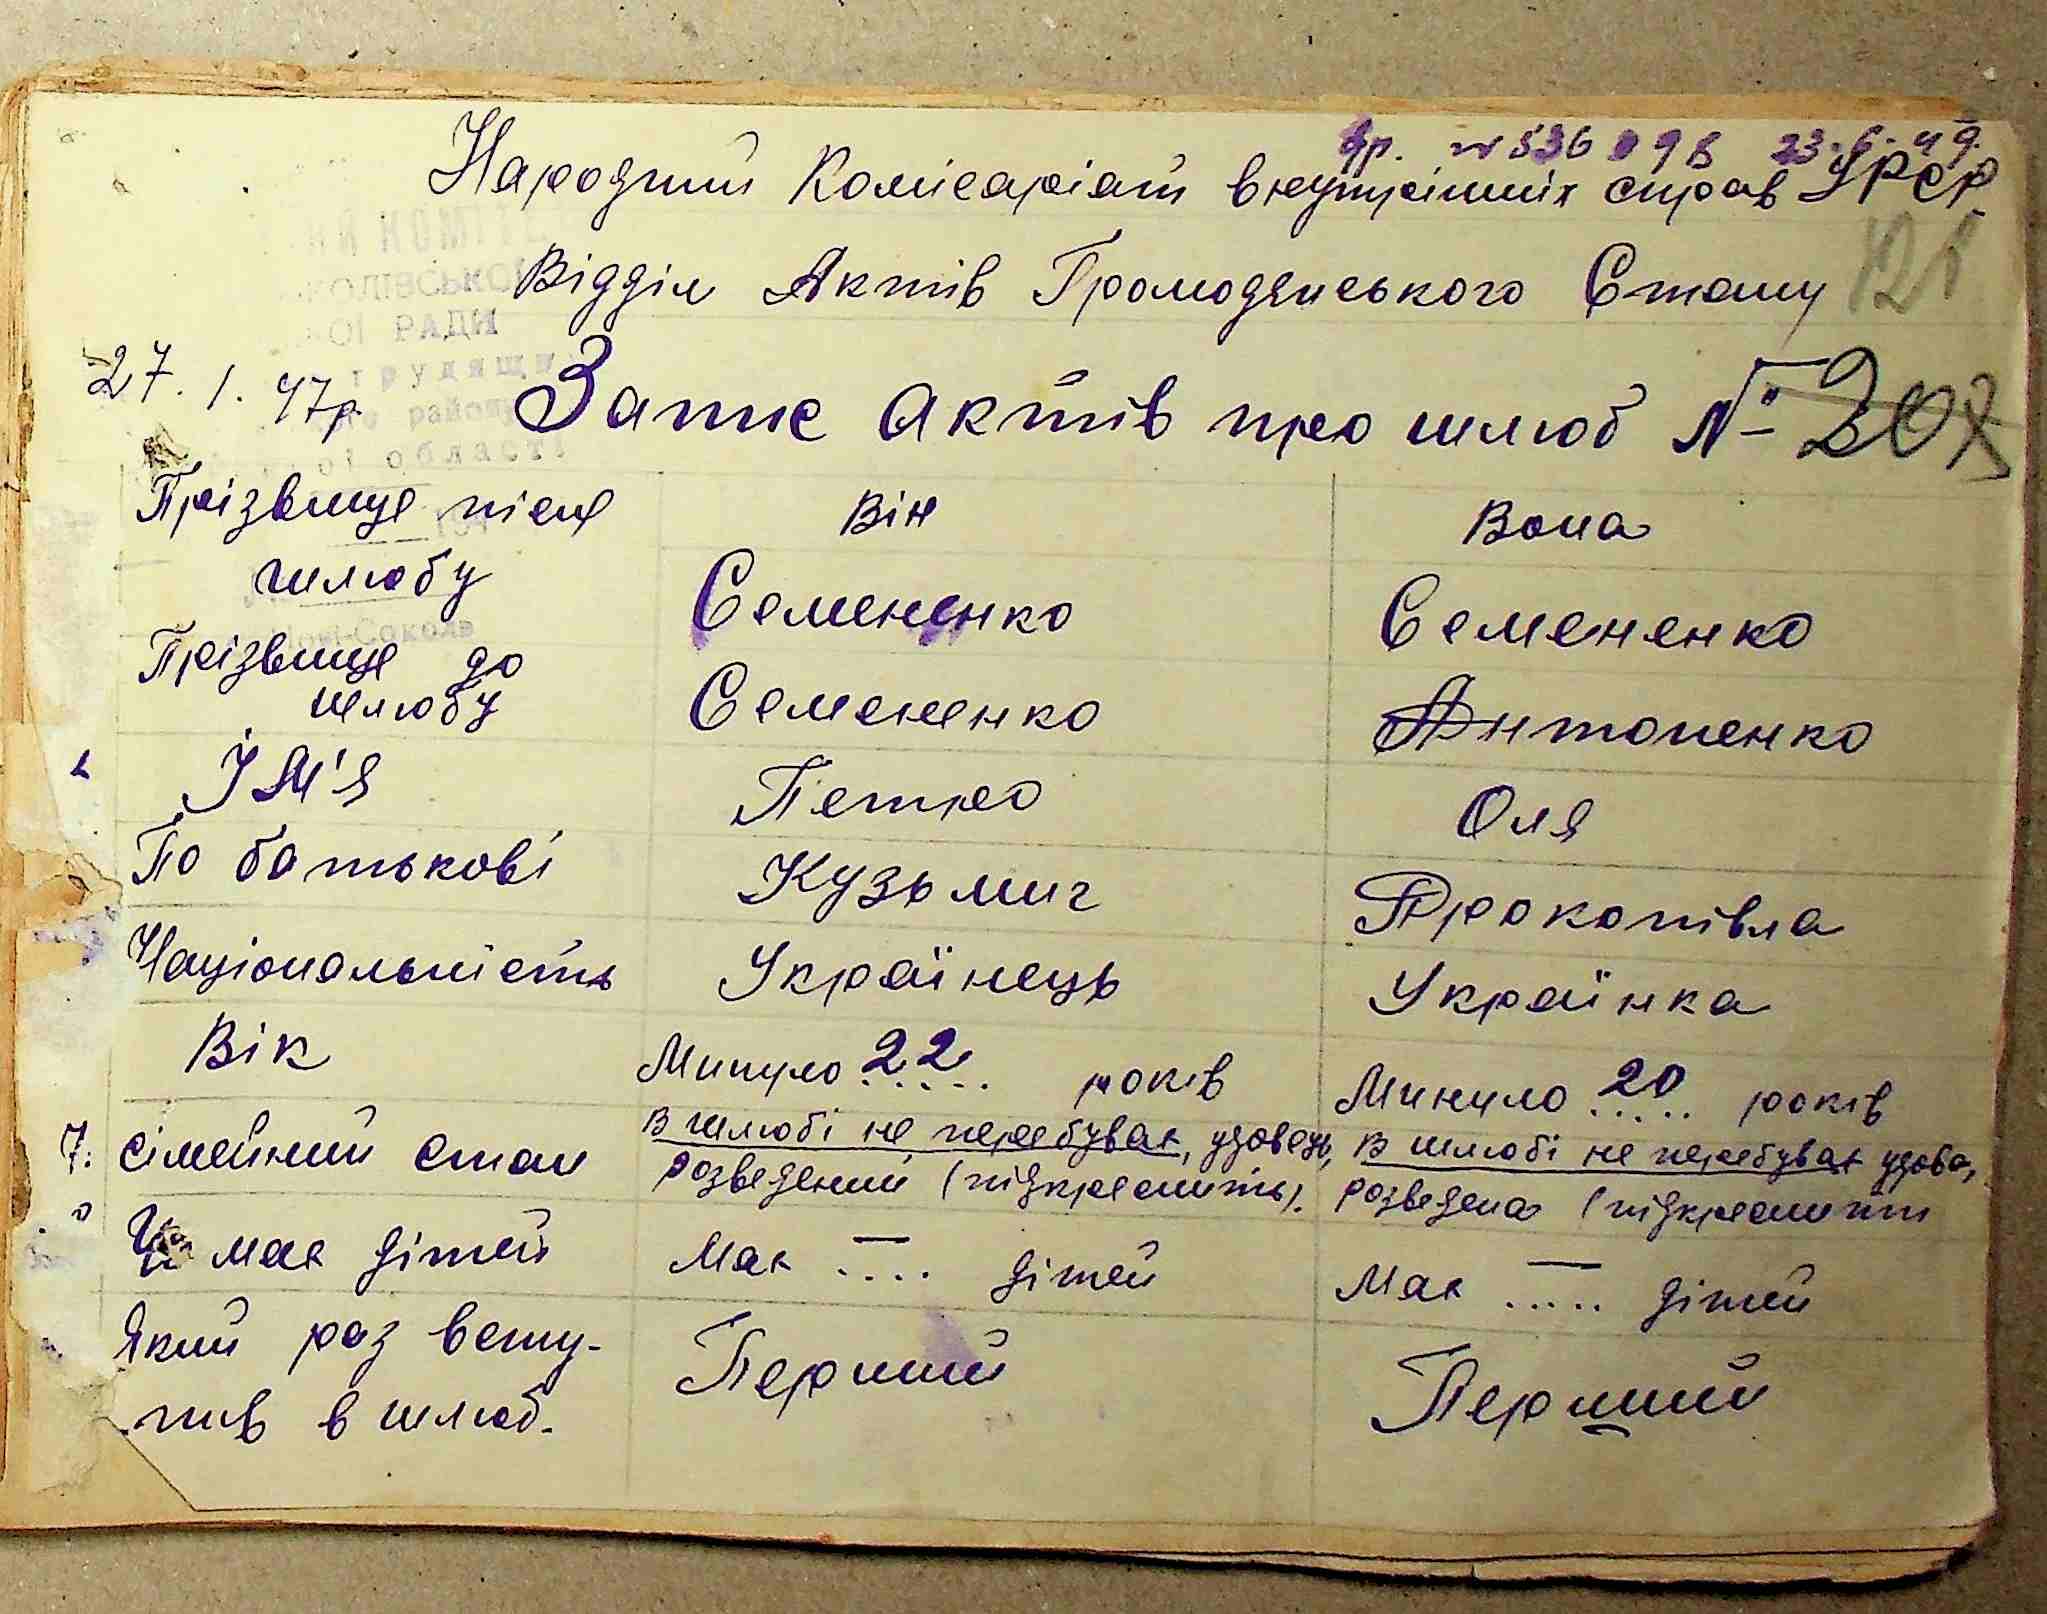 23.6.49.
Народний Комісаріат внутрішніх справ УРСР.
Відділ Актів Громодянського Стану
121
27.1.47р. Запис актів про шлюб №20
КОЛІВСЬКОЇ
ОЇ РАДИ
трудящи
району
ої області
Прізвище після шлюбу Він Вона
Семененко Семененко
Прізвище до шлюбу Семененко Антоненко
Ім'я Петро Оля
По батькові Кузьмич Прокопівна
Національність Українець Українка
Вік Минуло 22 років Минуло 20 років
7. сімейний стан В шлюбі не перебував, удовець, В шлюбі не перебував удова,
розведений (підкреслить). розведена (підкреслити
Чи має дітей Має — дітей Має — дітей
Який раз всту-
пив в шлюб. Перший Перший